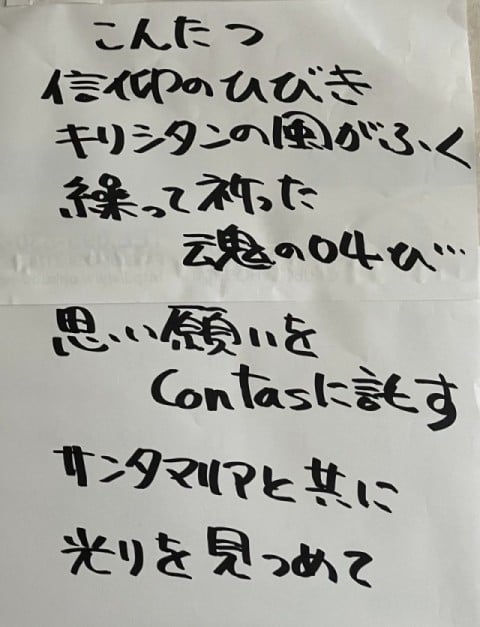 こんたつ
信仰のひびき
キリシタンの風がふく
繰って祈った
魂の04ひ…
思い願いを
Contasに託す
サンタマリアと共に
光りを見つめて